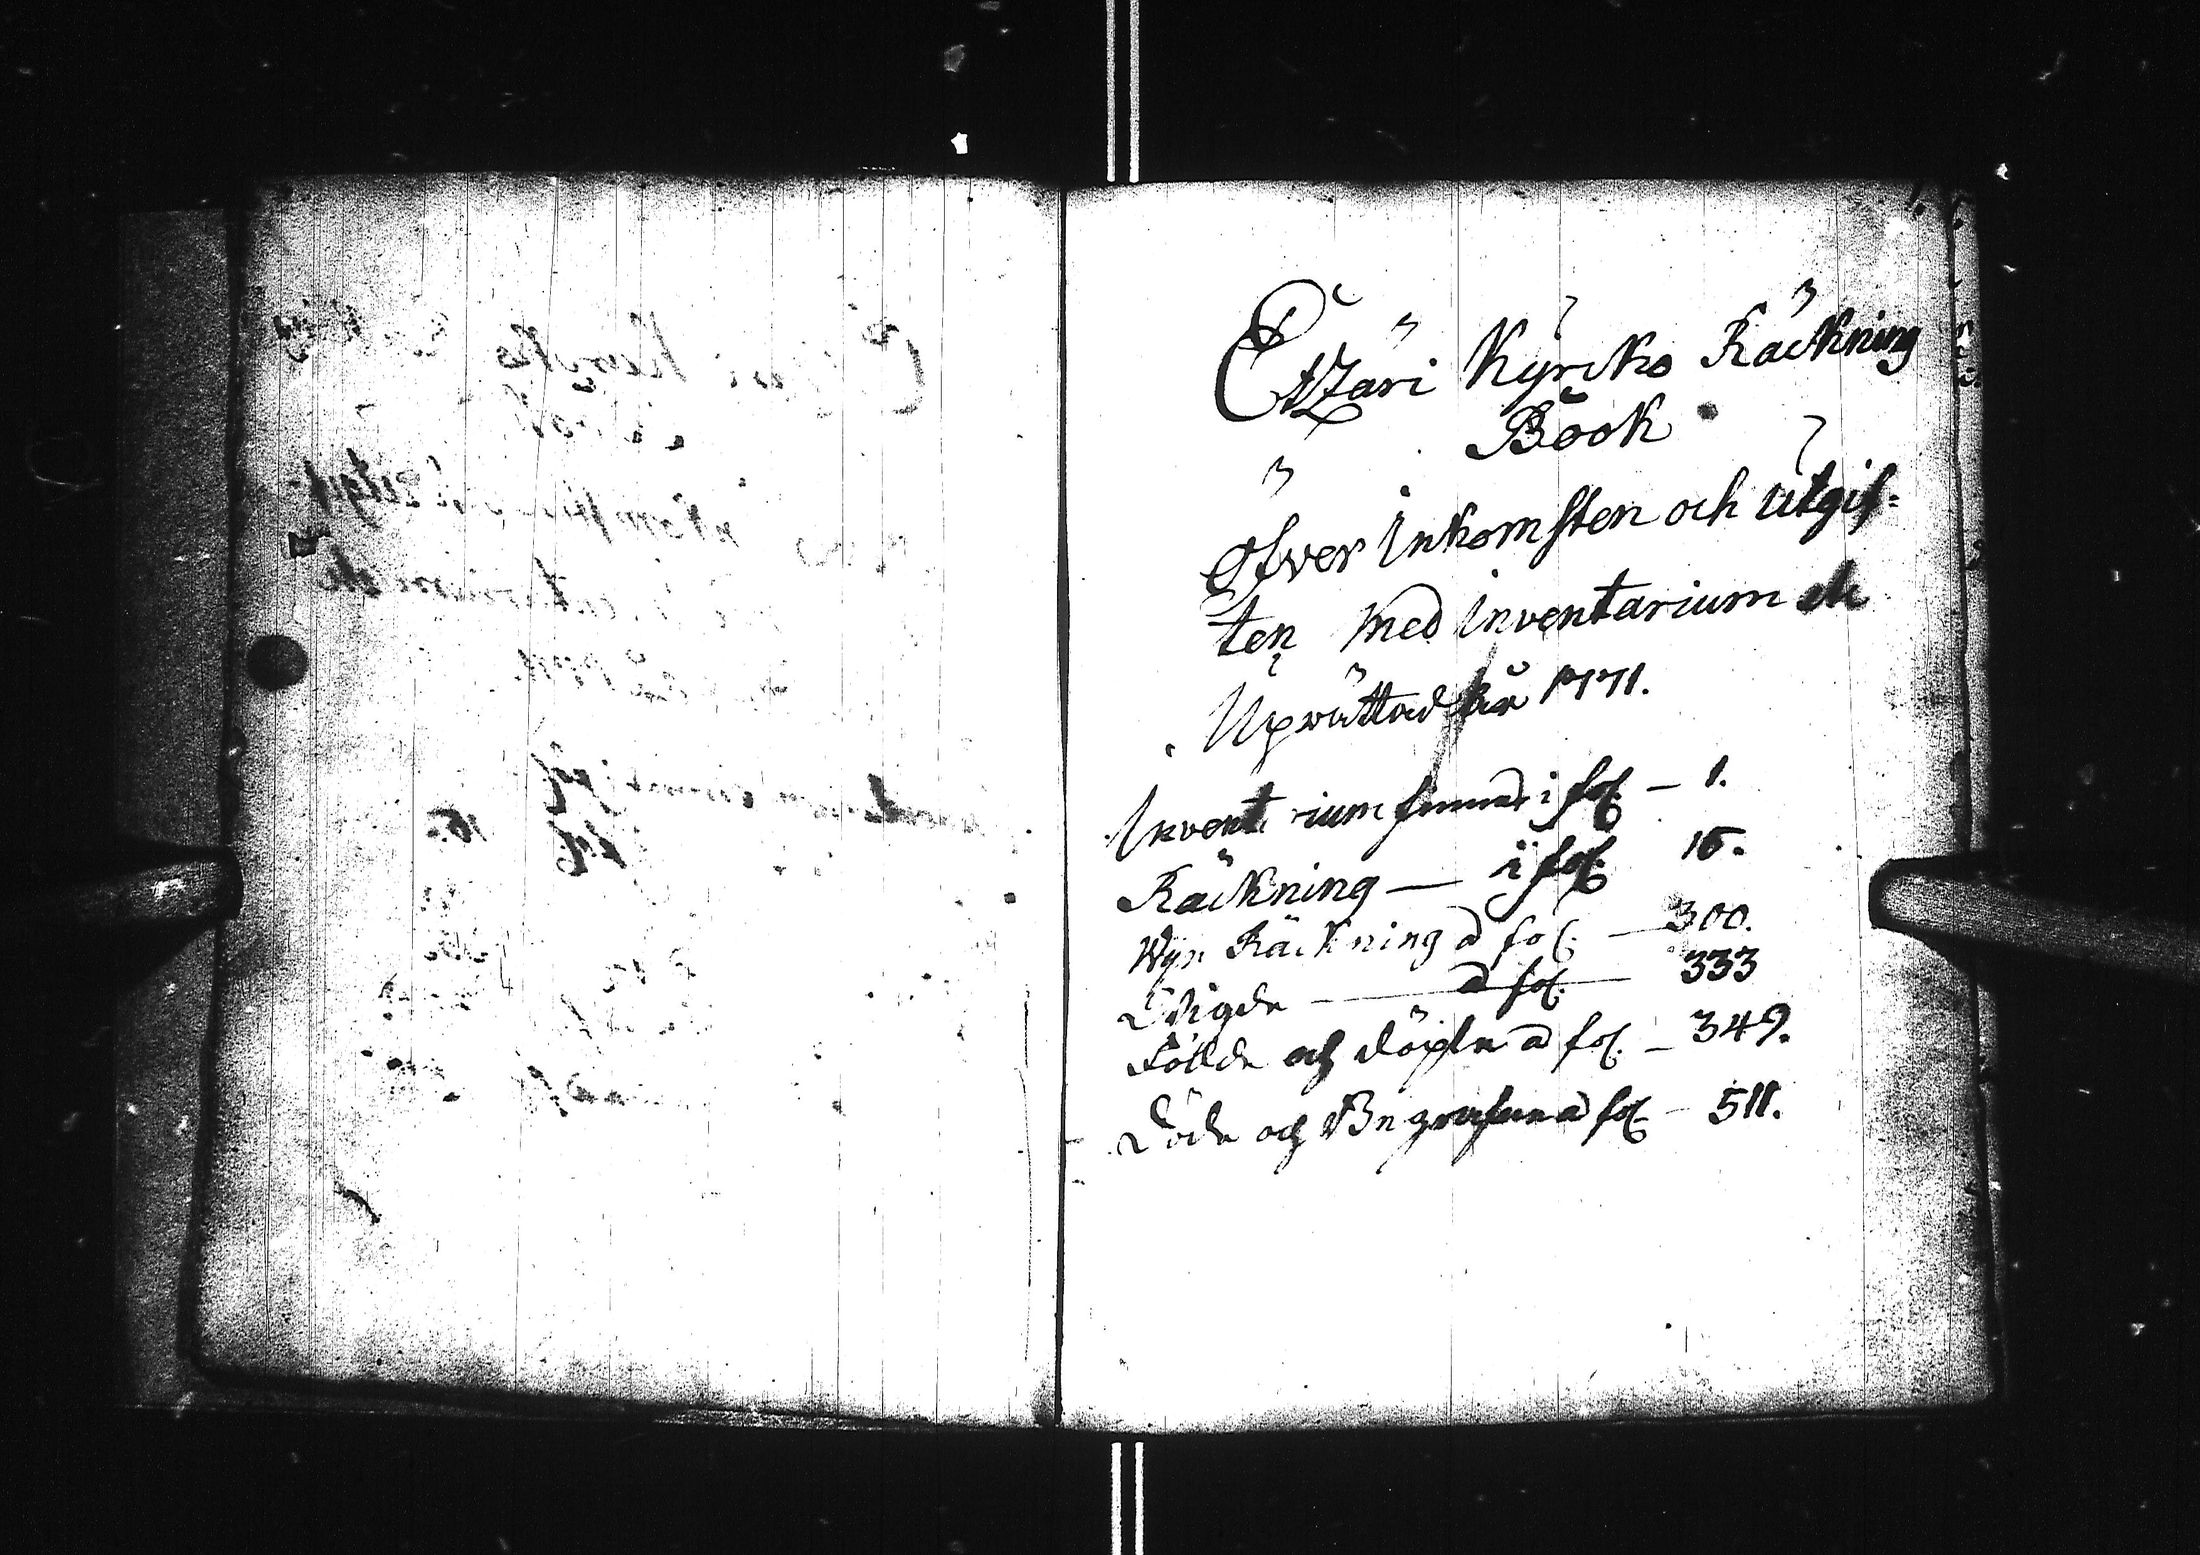 Etzäri Kyrcko Räckning
Book
öfver Inkomsten och Utgif=
ten med Inventarium etc
Uprättad år 1771.
Inventarium finnes i fol. — 1.
Räckning — i fol. 15.
Wijn Räckning a fol. — 300.
Wigde — a fol. — 333
Födde och döpte a fol. — 349.
Döde och Begrafne a fol. — 511.